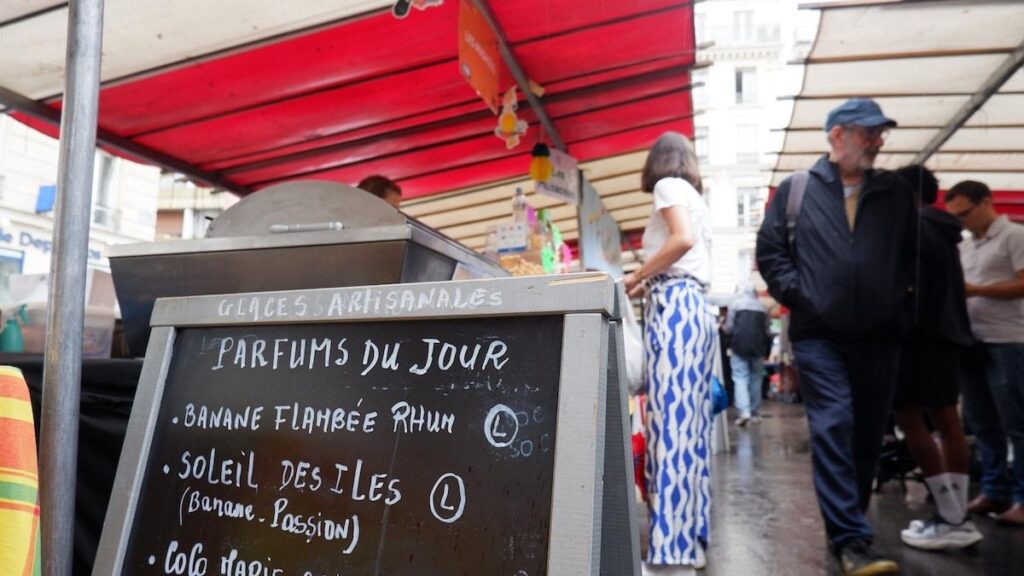 GLACES ARTISANALES
PARFUMS DU JOUR
• BANANE FLAMBÉE RHUM Ⓛ
• SOLEIL DES ILES Ⓛ
(Banane - Passion)
• COCO MARIE